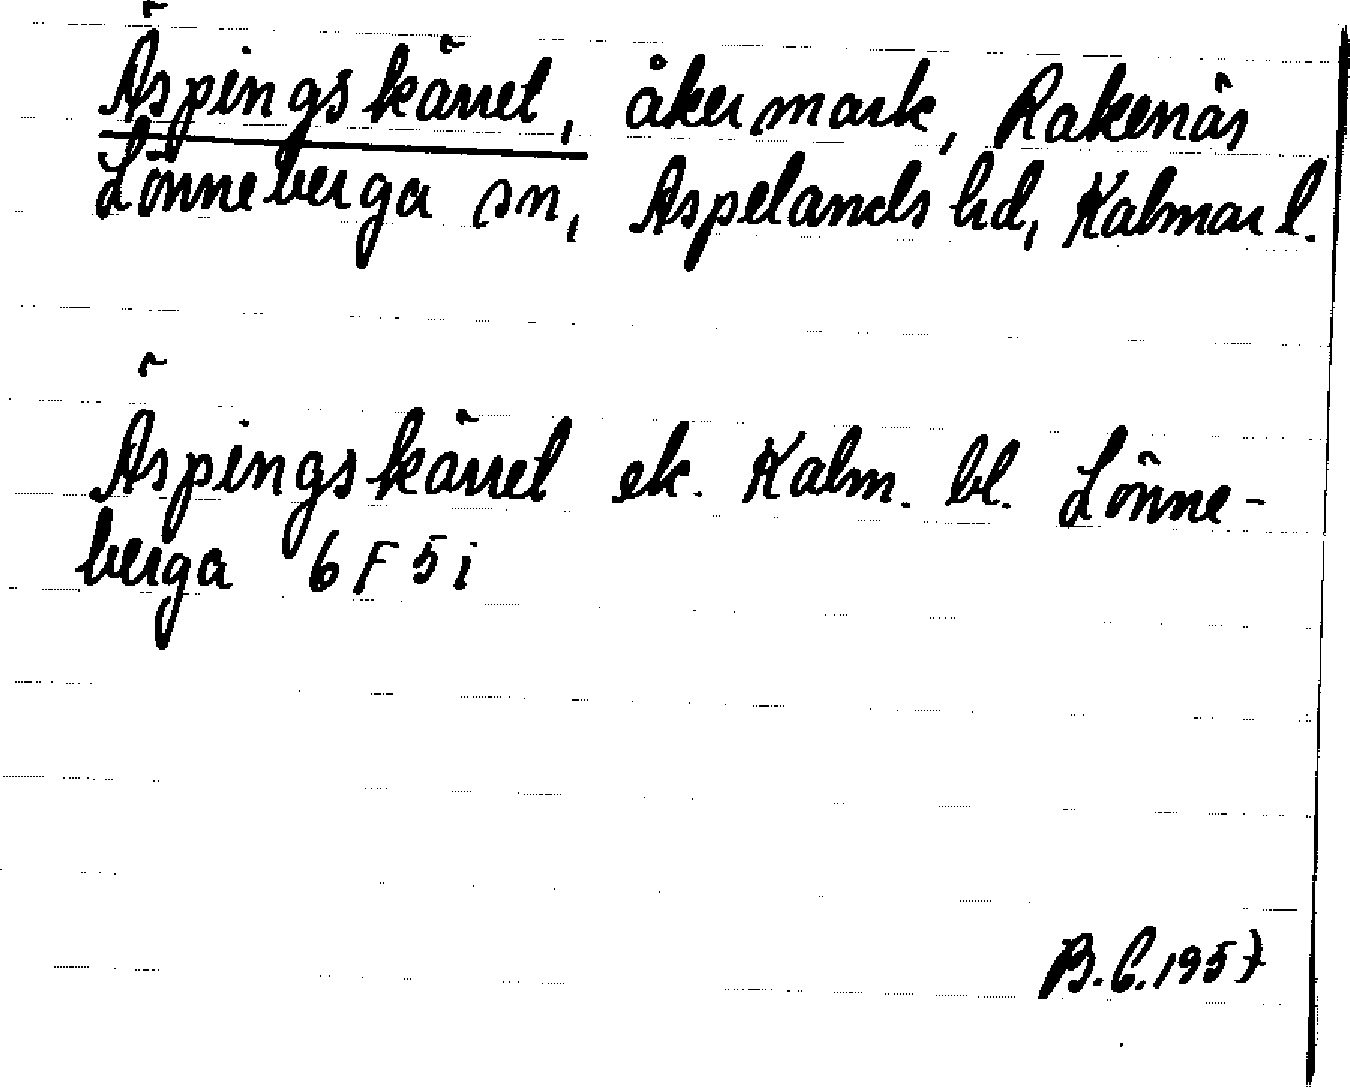 Äspingskärret, åkermark, Rakenäs
Lönneberga sn, Aspelands hd, Kalmar l.
Äspingskärret ek. Kalm. bl. Lönne-
berga 6F5i
B.C.1957